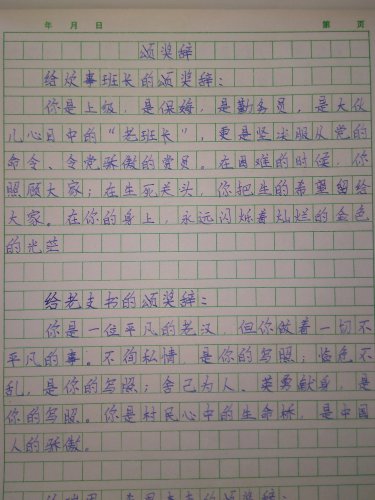 年 月 日 第 页
颁奖辞
给炊事班长的颁奖辞:
你是上级,是保姆,是勤务员,是大伙
儿心目中的“老班长”,更是坚决服从党的
命令、令党骄傲的党员。在困难的时候,你
照顾大家;在生死关头,你把生的希望留给
大家。在你的身上,永远闪烁着灿烂的金色
的光茫
给老支书的颁奖辞:
你是一位平凡的老汉,但你做着一切不
平凡的事。不徇私情 是你的写照;临危不
乱,是你的写照;舍己为人、英勇献身,是
你的写照。你是村民心中的生命桥,是中国
人的骄傲。